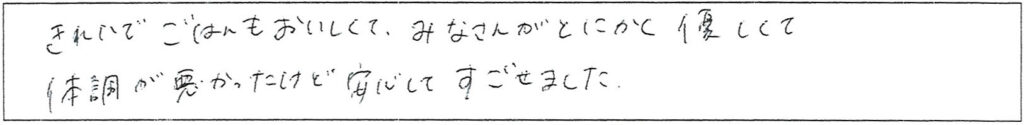 きれいで ごはんもおいしくて、みなさんがとにかく 優しくて
体調が悪かったけど安心して すごせました.